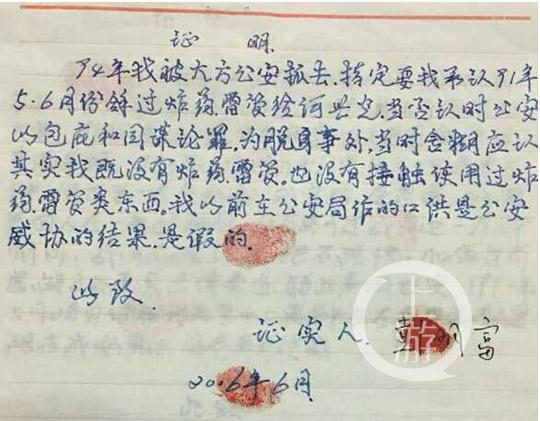 证 明
94年我被大方公安抓去,指定要我承认91年
5.6月份给过炸药.雷管给何兴充,当否认时公安
以包庇和同谋论罪,为脱身事外,当时含糊应认
其实我既没有炸药.雷管.也没有接触使用过炸
药.雷管类东西。我以前在公安局作的口洪是公安
威协的结果.是假的.
此致.
证实人. 明富
2016年6月
上游